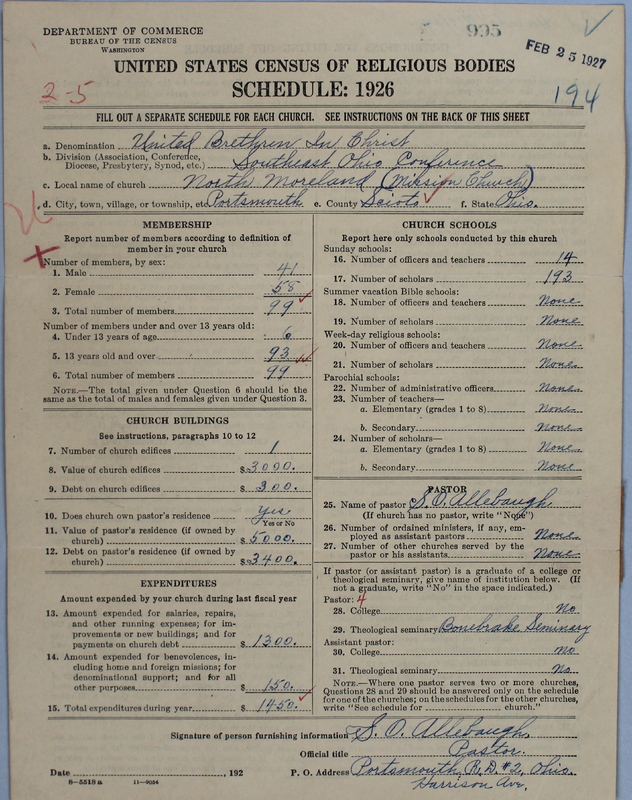 DEPARTMENT OF COMMERCE
BUREAU OF THE CENSUS
WASHINGTON
995
FEB 25 1927
UNITED STATES CENSUS OF RELIGIOUS BODIES
2-5
SCHEDULE: 1926
194
FILL OUT A SEPARATE SCHEDULE FOR EACH CHURCH. SEE INSTRUCTIONS ON THE BACK OF THIS SHEET
a. Denomination United Brethren In Christ
b. Division (Association, Conference,
Diocese, Presbytery, Synod, etc.) Southeast Ohio Conference
c. Local name of church North Moreland (Mission Church)
d. City, town, village, or township, etc Portsmouth e. County Scioto f. State Ohio.
MEMBERSHIP
Report number of members according to definition of
member in your church
Number of members, by sex:
1. Male 41
2. Female 58
3. Total number of members 99
Number of members under and over 13 years old:
4. Under 13 years of age 6
5. 13 years old and over 93
6. Total number of members 99
NOTE.—The total given under Question 6 should be
same as the total of males and females given under Question 3.
CHURCH BUILDINGS
See instructions, paragraphs 10 to 12
7. Number of church edifices 1
8. Value of church edifices $3000.
9. Debt on church edifices $300.
10. Does church own pastor's residence Yes
Yes or No
11. Value of pastor's residence (if owned by
church) $5000.
12. Debt on pastor's residence (if owned by
church) $3400.
EXPENDITURES
Amount expended by your church during last fiscal year
13. Amount expended for salaries, repairs,
and other running expenses; for im-
provements or new buildings; and for
payments on church debt $1300.
14. Amount expended for benevolences, in-
cluding home and foreign missions; for
denominational support; and for all
other purposes $150.
15. Total expenditures during year $1450.
CHURCH SCHOOLS
Report here only schools conducted by this church
Sunday schools:
16. Number of officers and teachers 14
17. Number of scholars 193
Summer vacation Bible schools:
18. Number of officers and teachers None
19. Number of scholars None
Week-day religious schools:
20. Number of officers and teachers None
21. Number of scholars None
Parochial schools:
22. Number of administrative officers None
23. Number of teachers—
a. Elementary (grades 1 to 8) None
b. Secondary None
24. Number of scholars—
a. Elementary (grades 1 to 8) None
b. Secondary None
PASTOR
25. Name of pastor S. O. Allebaugh
(If church has no pastor, write "None")
26. Number of ordained ministers, if any, em-
ployed as assistant pastors None
27. Number of other churches served by the
pastor or his assistants None
If pastor (or assistant pastor) is a graduate of a college or
theological seminary, give name of institution below. (If
not a graduate, write "No" in the space indicated.)
Pastor: 4
28. College No
29. Theological seminary Bonebrake Seminary
Assistant pastor:
30. College no
31. Theological seminary No
NOTE.—Where one pastor serves two or more churches,
Questions 28 and 29 should be answered only on the schedule
for one of the churches; on the schedules for the other churches,
write "See schedule for church."
Signature of person furnishing information S. O. Allebaugh
Official title Pastor.
Date , 192 P. O. Address Portsmouth R.D.#2, Ohio.
8—5518a 11—9054
Harrison Ave.